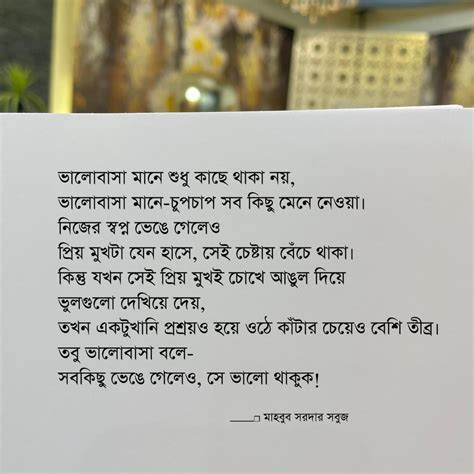 ভালোবাসা মানে শুধু কাছে থাকা নয়,
ভালোবাসা মানে-চুপচাপ সব কিছু মেনে নেওয়া।
নিজের স্বপ্ন ভেঙে গেলেও
প্রিয় মুখটা যেন হাসে, সেই চেষ্টায় বেঁচে থাকা।
কিন্তু যখন সেই প্রিয় মুখই চোখে আঙুল দিয়ে
ভুলগুলো দেখিয়ে দেয়,
তখন একটুখানি প্রশ্রয়ও হয়ে ওঠে কাঁটার চেয়েও বেশি তীব্র।
তবু ভালোবাসা বলে-
সবকিছু ভেঙে গেলেও, সে ভালো থাকুক!
____❐ মাহবুব সরদার সবুজ